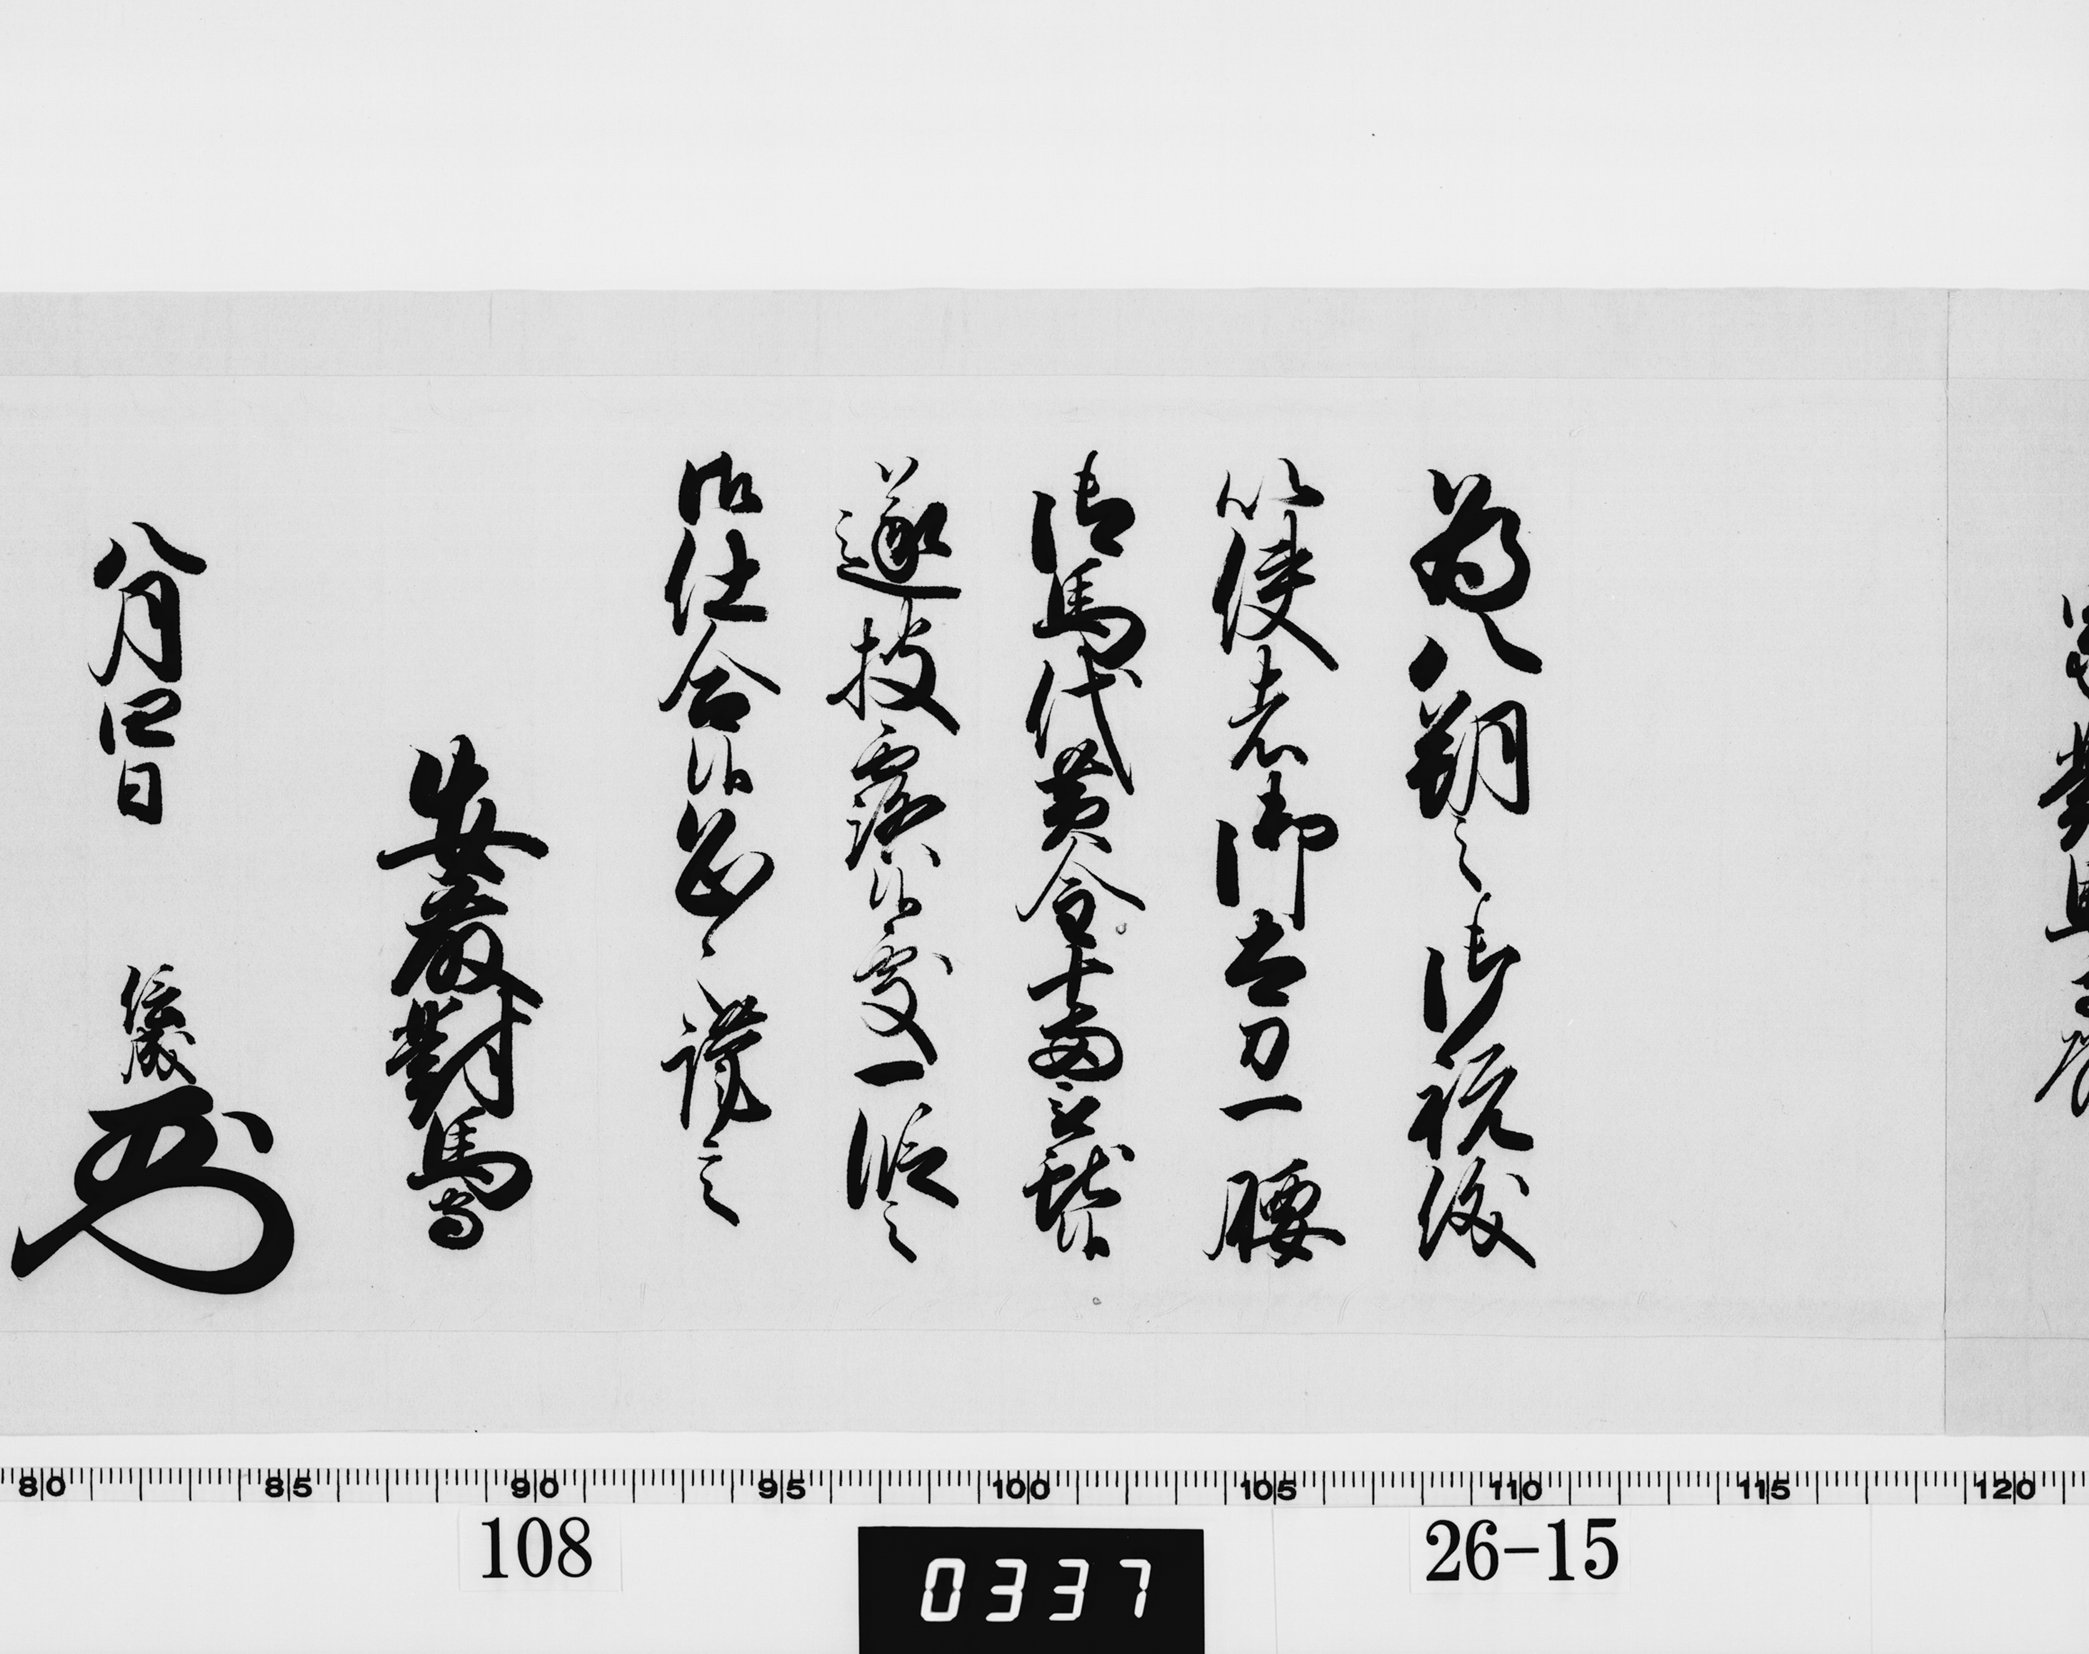 為八朔之御祝儀
以使者御太刀一腰
御馬代黄金十両被献候
遂披露候處一段之
御仕合候恐々謹言
安藤對馬守
八月四日 信成
80 85 90 95 100 105 110 115 120
108
0337
26-15